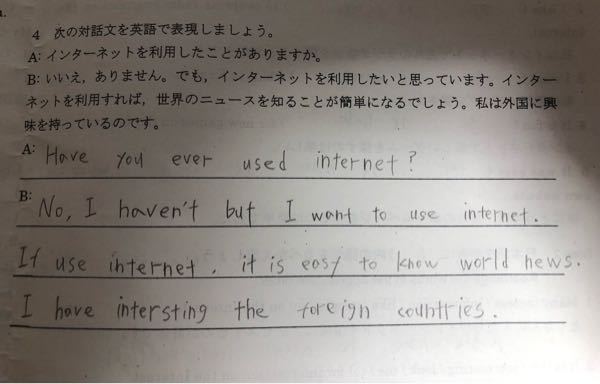 4 次の対話文を英語で表現しましょう。
A: インターネットを利用したことがありますか。
B: いいえ，ありません。でも，インターネットを利用したいと思っています。インター
ネットを利用すれば，世界のニュースを知ることが簡単になるでしょう。私は外国に興
味を持っているのです。
A: Have you ever used internet?
B: No, I haven't but I want to use internet.
If use internet, it is easy to know world news.
I have intersting the foreign countries.